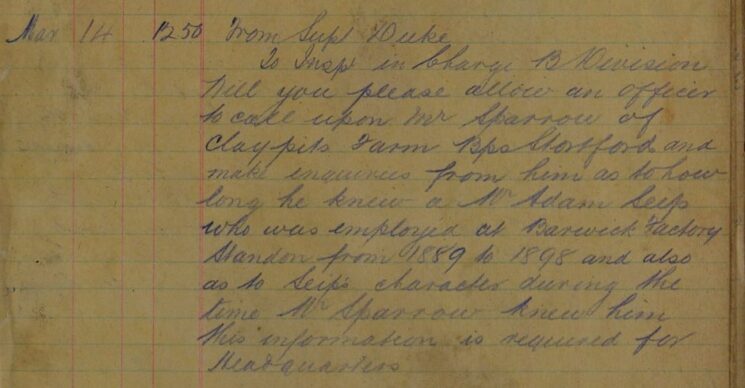 Mar 14 1250 From Supt Duke
To Inspr in Charge B Division
Will you please allow an officer
to call upon Mr Sparrow of
Claypits Farm Bps Stortford and
make enquiries from him as to how
long he knew a Mr Adam Seip
who was employed at Barwick Factory
Standon from 1889 to 1898 and also
as to Seip's character during the
time Mr Sparrow knew him
this information is required for
Headquarters